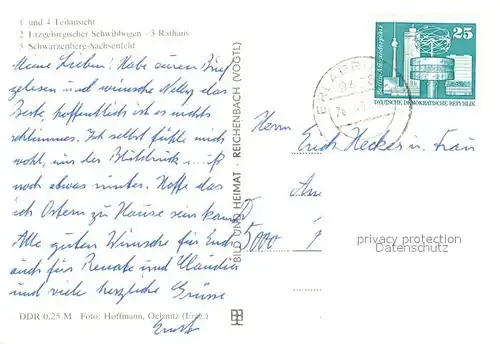 1 und 4 Teilansicht
2 Erzgebirgischer Schwibbogen - 3 Rathaus
5 Schwarzenberg-Sachsenfeld
Meine Lieben! Habe euren Brief
gelesen und wünsche Nelly das
Beste hoffentlich ist es nichts
schlimmes. Ich selbst fühle mich
wohl, nur der Blutdruck muß
noch etwas runter. Hoffe das
ich Ostern zu Hause sein kann.
Alle guten Wünsche für Euch
auch für Renate und Claudia
und viele herzliche Grüsse
Ernst
DDR 0,25 M Foto: Hoffmann, Oelsnitz (Erzg.)
BILD UND HEIMAT REICHENBACH (VOGTL)
25
DEUTSCHE DEMOKRATISCHE REPUBLIK
Herrn
Erich Hecker u. Frau
Am
5000
privacy protection
Datenschutz